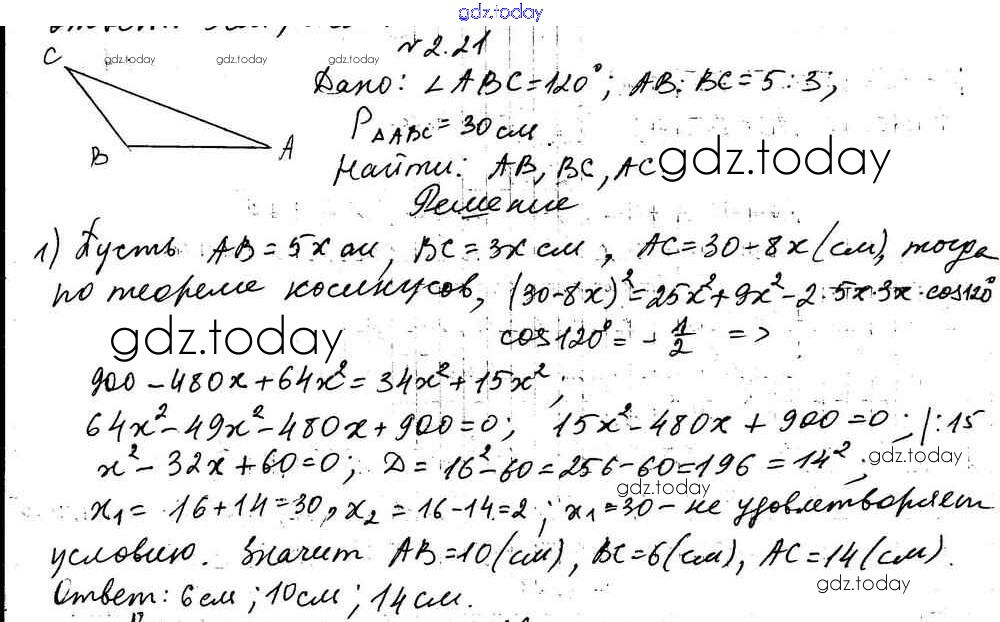 gdz.today
№ 2.21
C
gdz.today gdz.today gdz.today gdz.today
Дано: ∠ABC=120°; AB:BC=5:3;
P△ABC=30см.
B A
Найти: AB, BC, AC
gdz.today
Решение
1) Пусть AB=5x см, BC=3x см, AC=30-8x(см), тогда
по теореме косинусов, (30-8x)²=25x²+9x²-2·5x·3x·cos120°
gdz.today
cos120°= -1/2 =>
900-480x+64x²=34x²+15x²;
64x²-49x²-480x+900=0; 15x²-480x+900=0; |:15
x²-32x+60=0; D=16²-60=256-60=196=14²;
gdz.today
gdz.today
x₁=16+14=30, x₂=16-14=2; x₁=30-не удовлетворяет
условию. Значит AB=10(см), BC=6(см), AC=14(см).
gdz.today
Ответ: 6см; 10см; 14см.